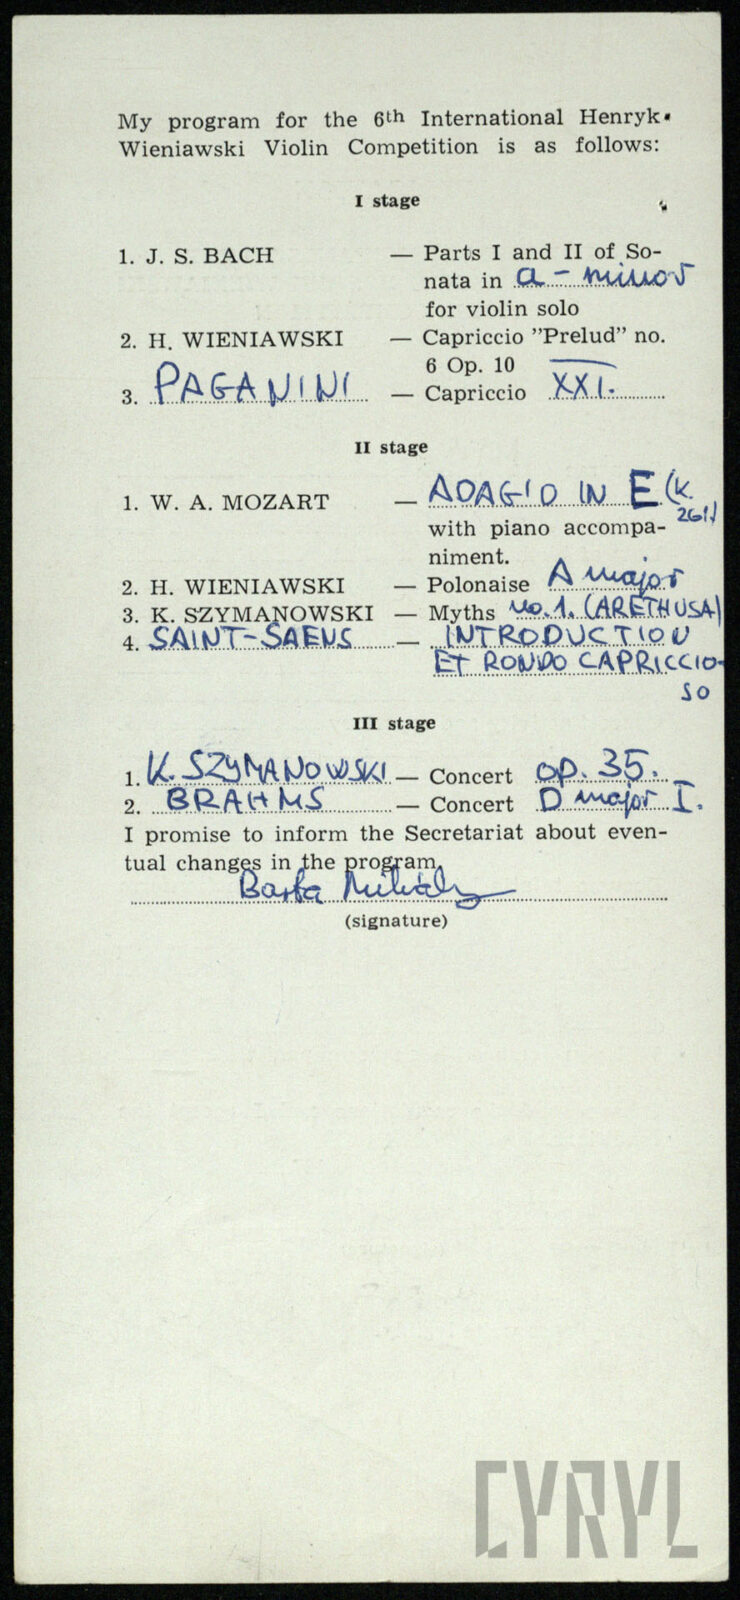 My program for the 6th International Henryk
Wieniawski Violin Competition is as follows:
I stage
1. J. S. BACH — Parts I and II of So-
nata in a - minor
for violin solo
2. H. WIENIAWSKI — Capriccio "Prelud" no.
6 Op. 10
3. PAGANINI — Capriccio XXI.
II stage
1. W. A. MOZART — ADAGIO IN E (K.
261)
with piano accompa-
niment.
2. H. WIENIAWSKI — Polonaise A major
3. K. SZYMANOWSKI — Myths no. 1. (ARETHUSA)
4. SAINT-SAENS — INTRODUCTION
ET RONDO CAPRICCIO-
SO
III stage
1. K. SZYMANOWSKI — Concert op. 35.
2. BRAHMS — Concert D major I.
I promise to inform the Secretariat about even-
tual changes in the program.
Barta Mihály
(signature)
CYRYL